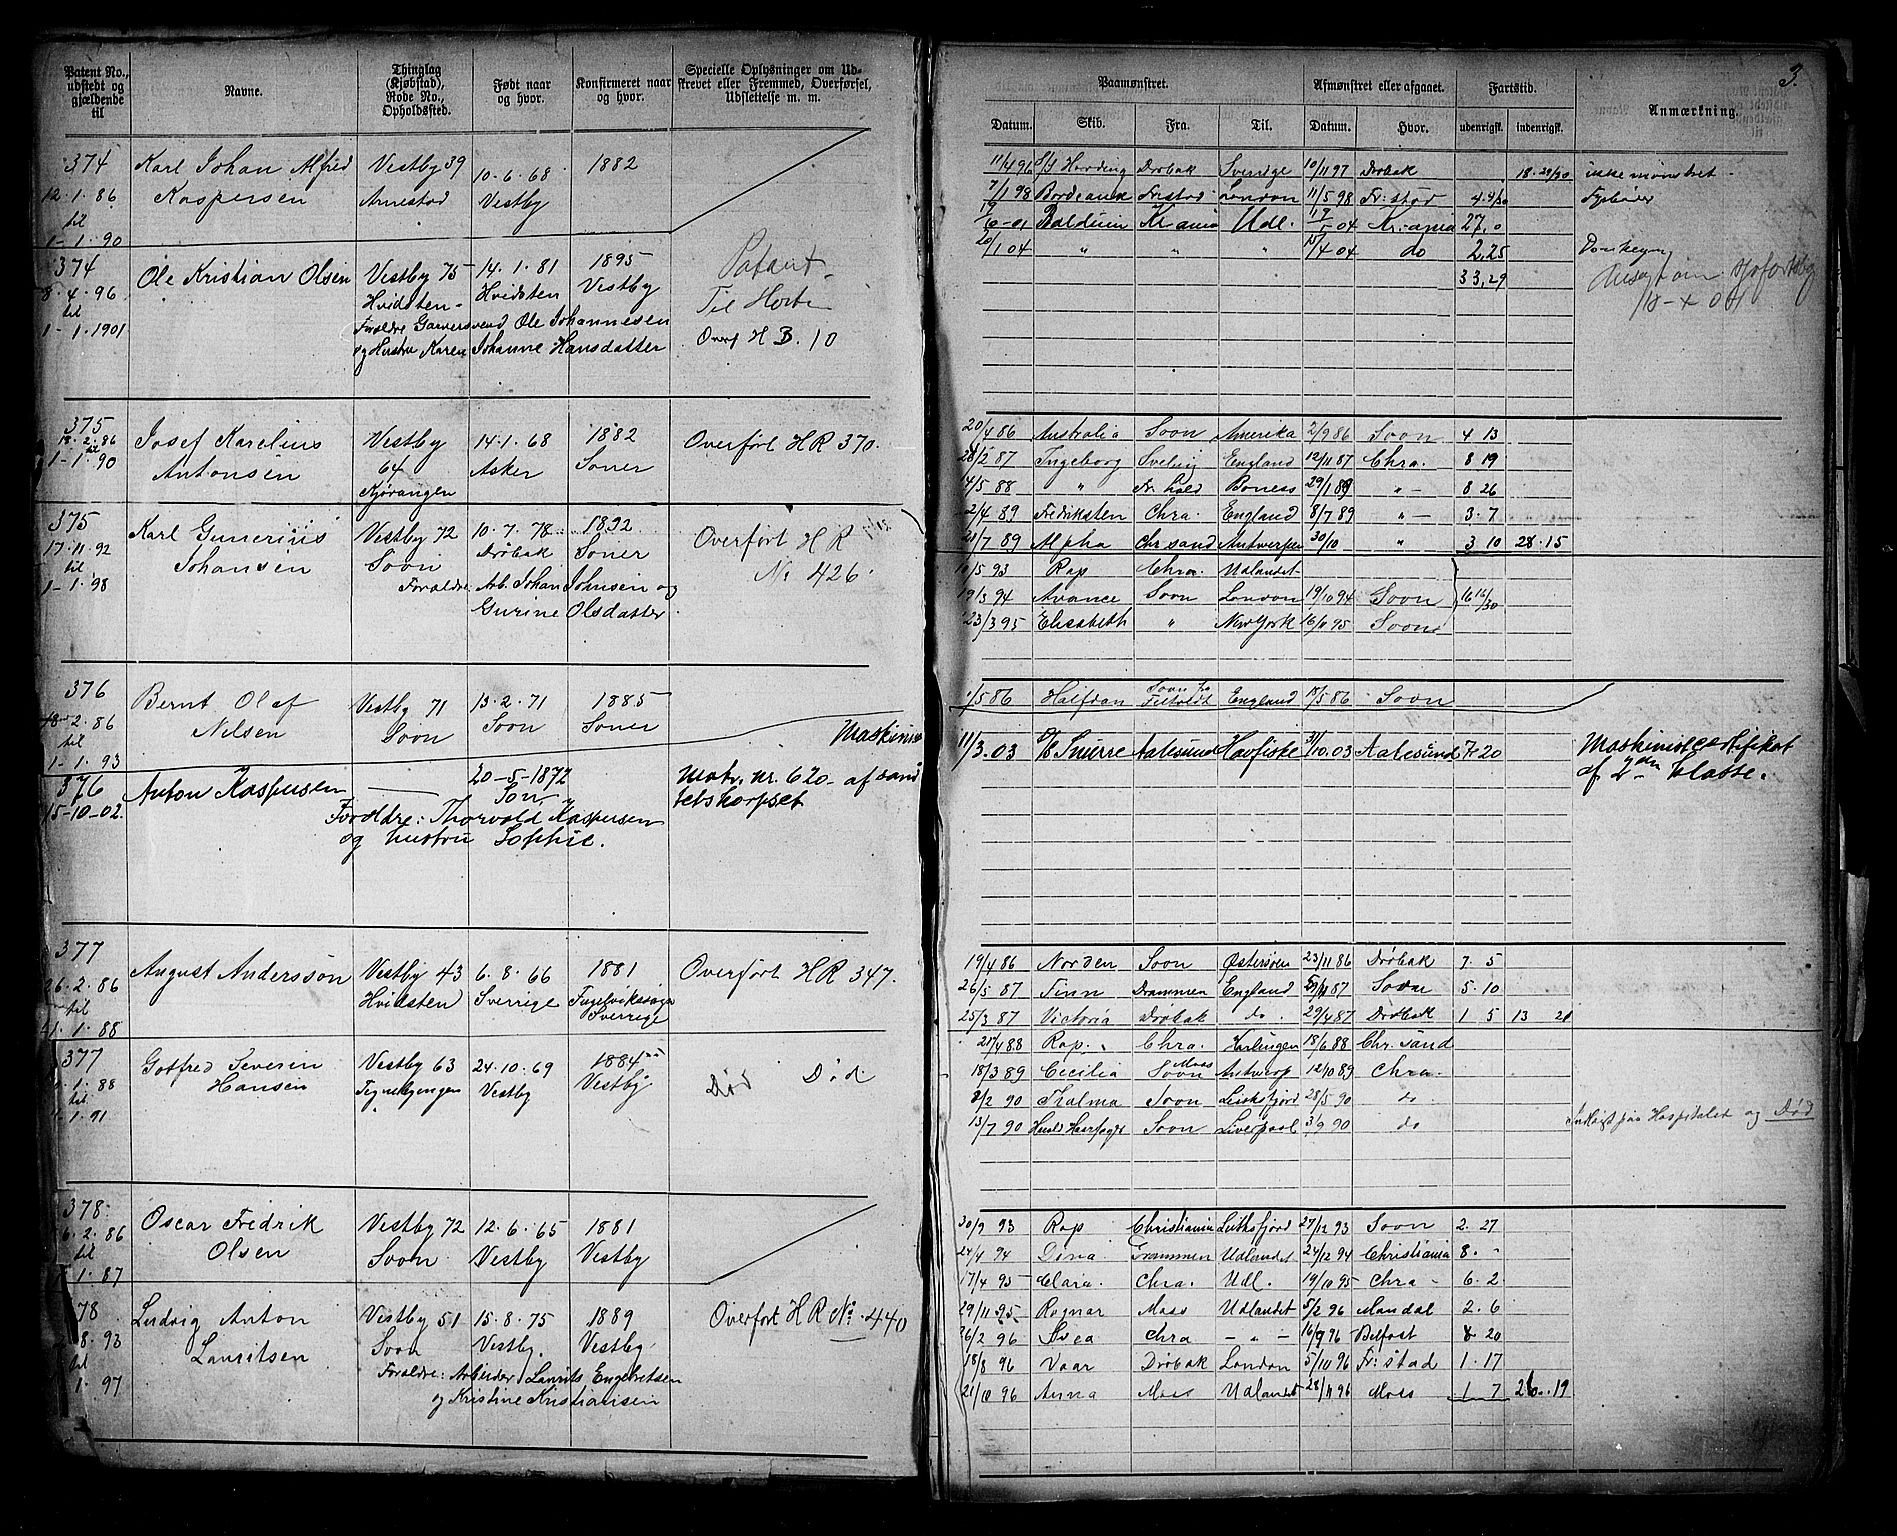 Patent No., udstedt og gjældende til
Navne.
Thinglag (Kjøbstad), Rode No., Opholdssted.
Født naar og hvor.
Konfirmeret naar og hvor.
Specielle Oplysninger om Udskrevet eller Fremmed, Overførsel, Udslettelse m. m.
374 Karl Johan Alfred Vestby 39 10-6-68 1882
12-1-86 Kaspersen Vestby
til
1-1-90
374 Ole Kristian Olsen Vestby 75 14-1-81 1895 Patent
8-4-96 Hvidsten Hvidsten Vestby
til Forældre Ole Johannesen Til
1-1-1901 og Hustru Karen Johanne Hansdatter Overf H B. 10
375 Josef Karelius Vestby 14-1-68 1882 Overført HR 370.
18-2-86 Antonsen 64 Asker Soner
1-1-90 Kjørangen
375 Karl Gunerius Vestby 72 10-7-78 1892 Overført HR
17-11-92 Johansen Soon Drøbak Soner No 426.
til Forældre Arb. Johan Johnsen og
1-1-98 Gurine Olsdatter.
376 Bernt Olaf Vestby 71 13-2-71 1885
18-2-86 Nilsen Soon Soon Soner
til Maskinist
1-1-93
376 Anton Kaspersen 20-5-1872 Matr. nr. 620 af
15-10-02. Son
Forældre: Thorvald Kaspersen
og hustru Sophie.
377 August Anderssøn Vestby 43 6-8-66 1881 Overført HR 347.
26-2-86 Hvidsten Sverrige
til Sverrige
1-1-88
377 Gotfred Severin Vestby 63 24-10-69 1884
1-88 Hansen Vestby Vestby Død Død
til
1-91
378 Oscar Fredrik Vestby 72 12-6-65 1881
6-2-86 Olsen Soon Vestby Vestby
til
1-87
78 Ludvig Anton Vestby 51 15-8-75 1889 Overført HR No 440
8-93 Lauritsen Soon Vestby. Vestby.
til Forældre: Arbeider Laurits Engebretsen
1-97 og Kristine Kristiansen
3.
Paamønstret. Afmønstret eller afgaaet. Fartstid. Anmærkning.
Datum. Skib. Fra. Til. Datum. Hvor. udenrigsk. indenrigsk.
11/4 96 S/S Harding Drøbak Sverrige 10/11 97 Drøbak 18-29/30 ikke mønstret
7/1 98 Bordeaux Frstad London 11/5 98 Fr:stad Fyrbøder
Balduin Kr.ania Udl. Kr.ania 27,0
20/1 04 " " " 15/4 04 do 2,25 Donkeym
33,29
20/4 86 Australia Soon Amerika 2/9 86 Soon 4 13
28/2 87 Ingeborg Svelvig England 12/11 87 Chra. 8 19
14/5 88 " Fr. hald Boness 29/1 89 " 8 26
2/4 89 Fredriksten Chra. England 8/7 89 " 3-7
21/7 89 Alpha Chr.sand Antwerpen 30/10 " 3 10 28-15
10/5 93 Rap Chra. Udlandet
19/3 94 Avance Soon London 19/10 94 Soon 16 16/30
23/3 95 Elisabeth " New York 16/11 95 Soon
1/5 86 Halfdan England 18/5 86 Soon
11/3.03 Snorre Aalesund Havfiske 31/10.03 Aalesund 7-20 Maskinistcertifikat
af 2den klasse.
19/4 86 Norden Soon Østersøen 23/11 86 Drøbak 7. 5
26/5 87 Finn Drammen England Soon 5. 10
25/3 87 Victoria Drøbak do. 29/4 87 Drøbak 1 5 13 21
21/4 88 Rap. Chra. Harlingen 18/6 88 Chr.sand
18/3 89 Cecilia Soon Moss Antwerp 12/10 89 Chra.
2/2 90 Thalma Soon Leithsfjord 28/5 90 do
13/7 90 Harald Haarfager Soon Liverpool 3/9 90 do Indlagt paa Hospitalet og Død
30/9 93 Rap Christiania Leithsfjord 27/12 93 Soon 2. 27
24/4 94 Dina Drammen Udlandet 24/12 94 Christiania 8. "
17/4 95 Clara. Chra. Udl. 19/10 95 Chra 6. 2
29/11 95 Ragnar Moss Udlandet 5/2 96 Mandal 2. 6
26/2 96 Svea Chra " 16/9 96 Belfast 8 20
18/8 96 Vaar Drøbak London 5/10 96 Fr:stad 1. 17
21/10 96 Anna Moss Udlandet 28/11 96 Moss 1 7 26.19